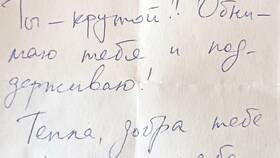 Ты - крутой!! Обни-
маю тебя и под-
держиваю!
Тепла, добра тебе